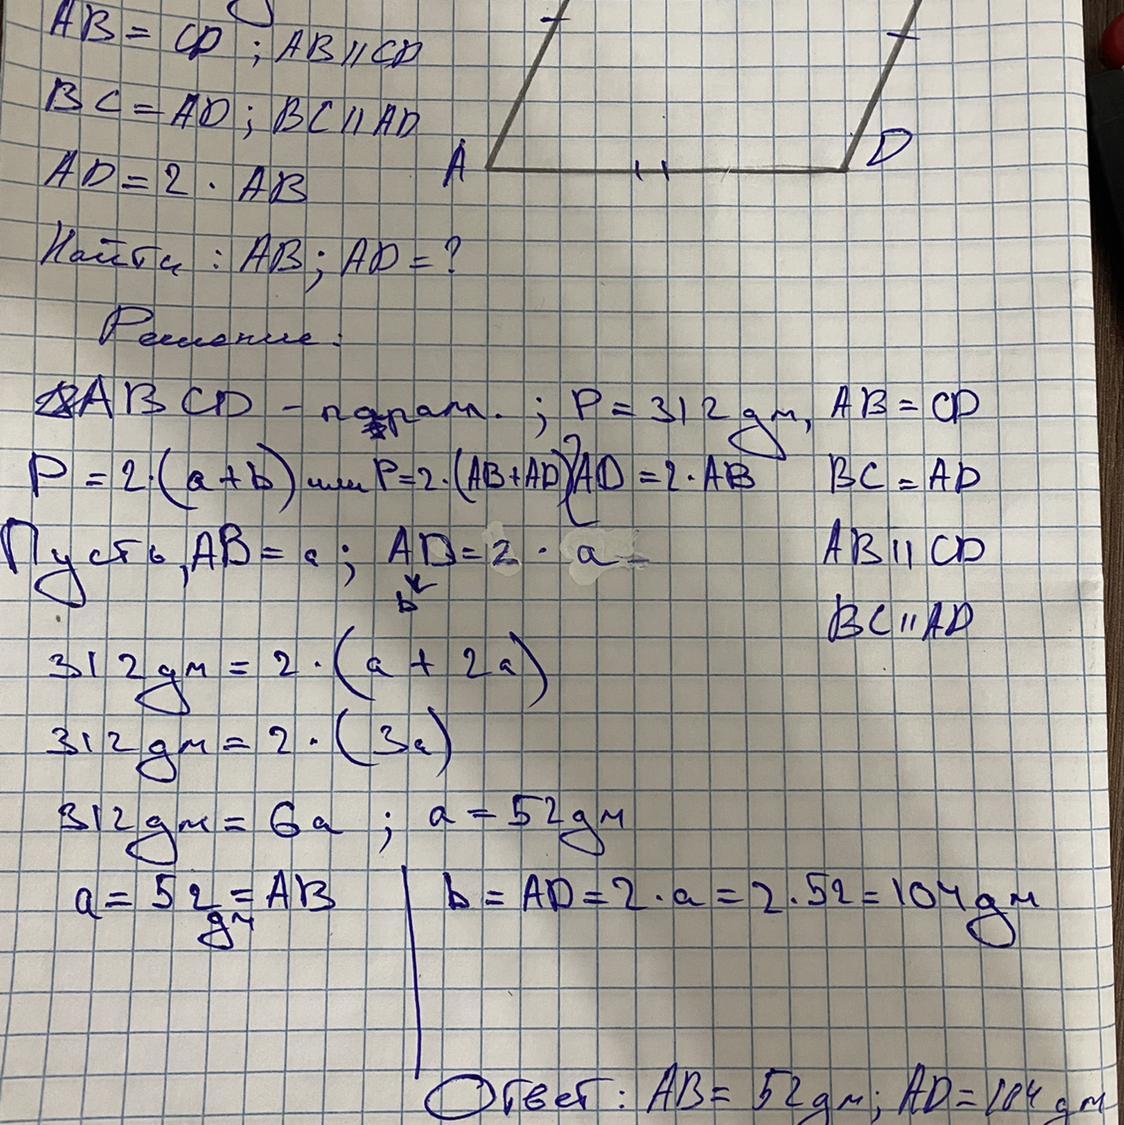 AB = CD ; AB || CD
BC = AD ; BC || AD
AD = 2 · AB
Найти : AB ; AD = ?
A
D
Решение:
ABCD - парал. ; P = 312 дм, AB = CD
P = 2·(a+b) или P=2·(AB+AD) AD = 2·AB BC = AD
Пусть, AB = a ; AD = 2 · a AB || CD
b
BC || AD
312 дм = 2 · (a + 2a)
312 дм = 2 · (3a)
312 дм = 6a ; a = 52 дм
a = 52 дм = AB
b = AD = 2·a = 2·52 = 104 дм
Ответ : AB = 52 дм; AD = 104 дм